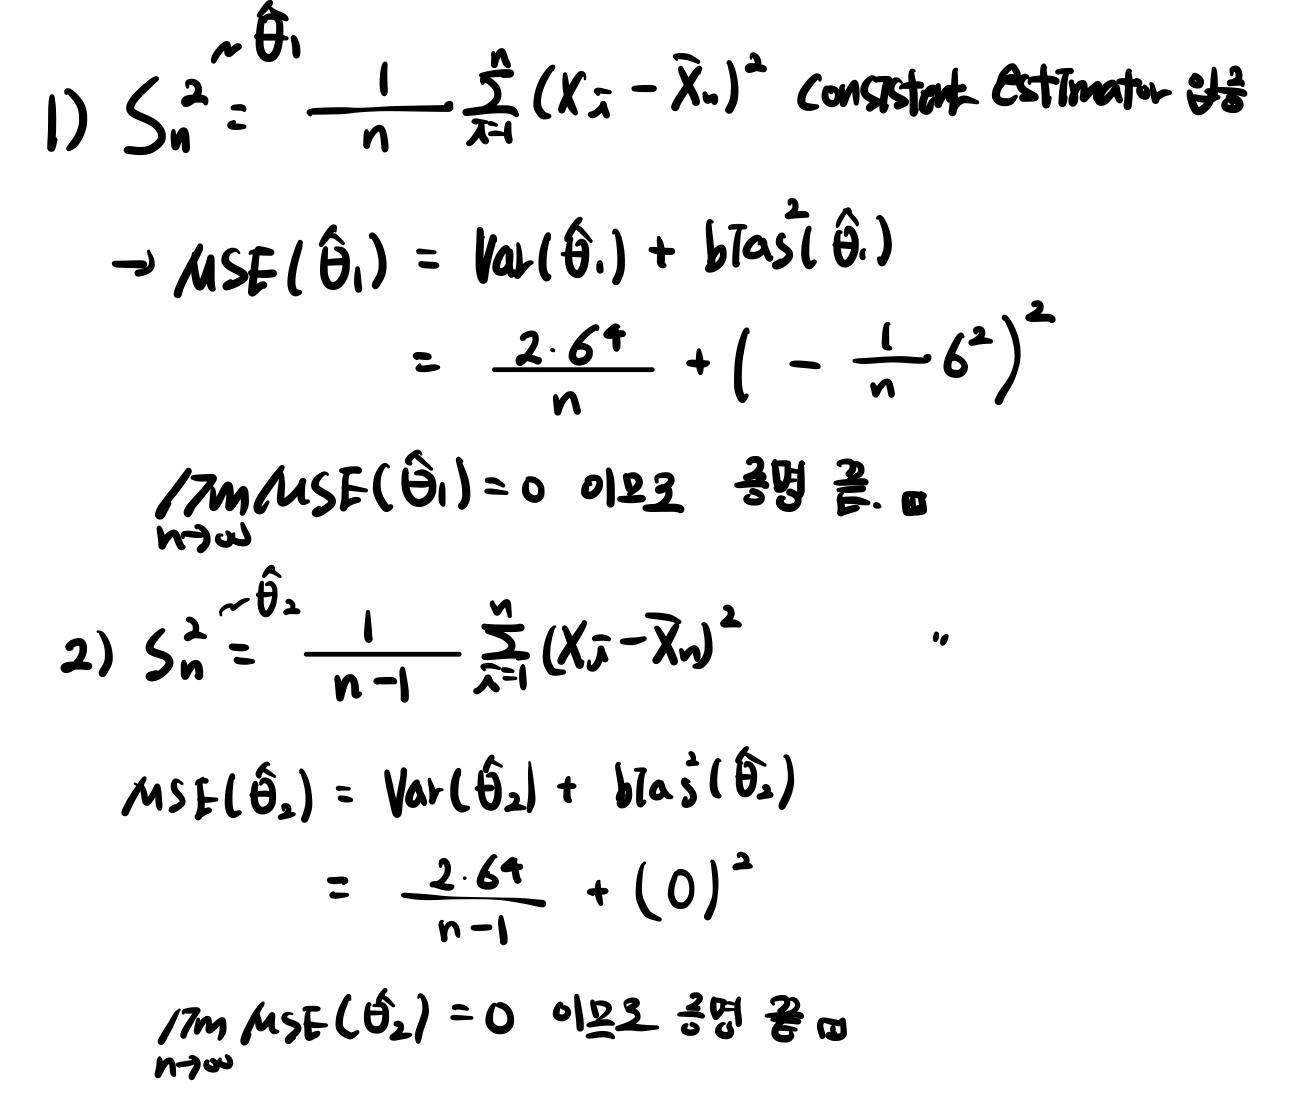 1) S_n^2 ~ θ̂₁ = 1/n Σ_{i=1}^{n} (X_i − X̄_n)² consistent estimator 임을
→ MSE(θ̂₁) = Var(θ̂₁) + bias²(θ̂₁)
= 2·σ⁴/n + (− 1/n σ²)²
lim_{n→∞} MSE(θ̂₁) = 0 이므로 증명 끝. □
2) S_n^2 ~ θ̂₂ = 1/(n−1) Σ_{i=1}^{n} (X_i − X̄_n)² 〃
MSE(θ̂₂) = Var(θ̂₂) + bias²(θ̂₂)
= 2·σ⁴/(n−1) + (0)²
lim_{n→∞} MSE(θ̂₂) = 0 이므로 증명 끝 □